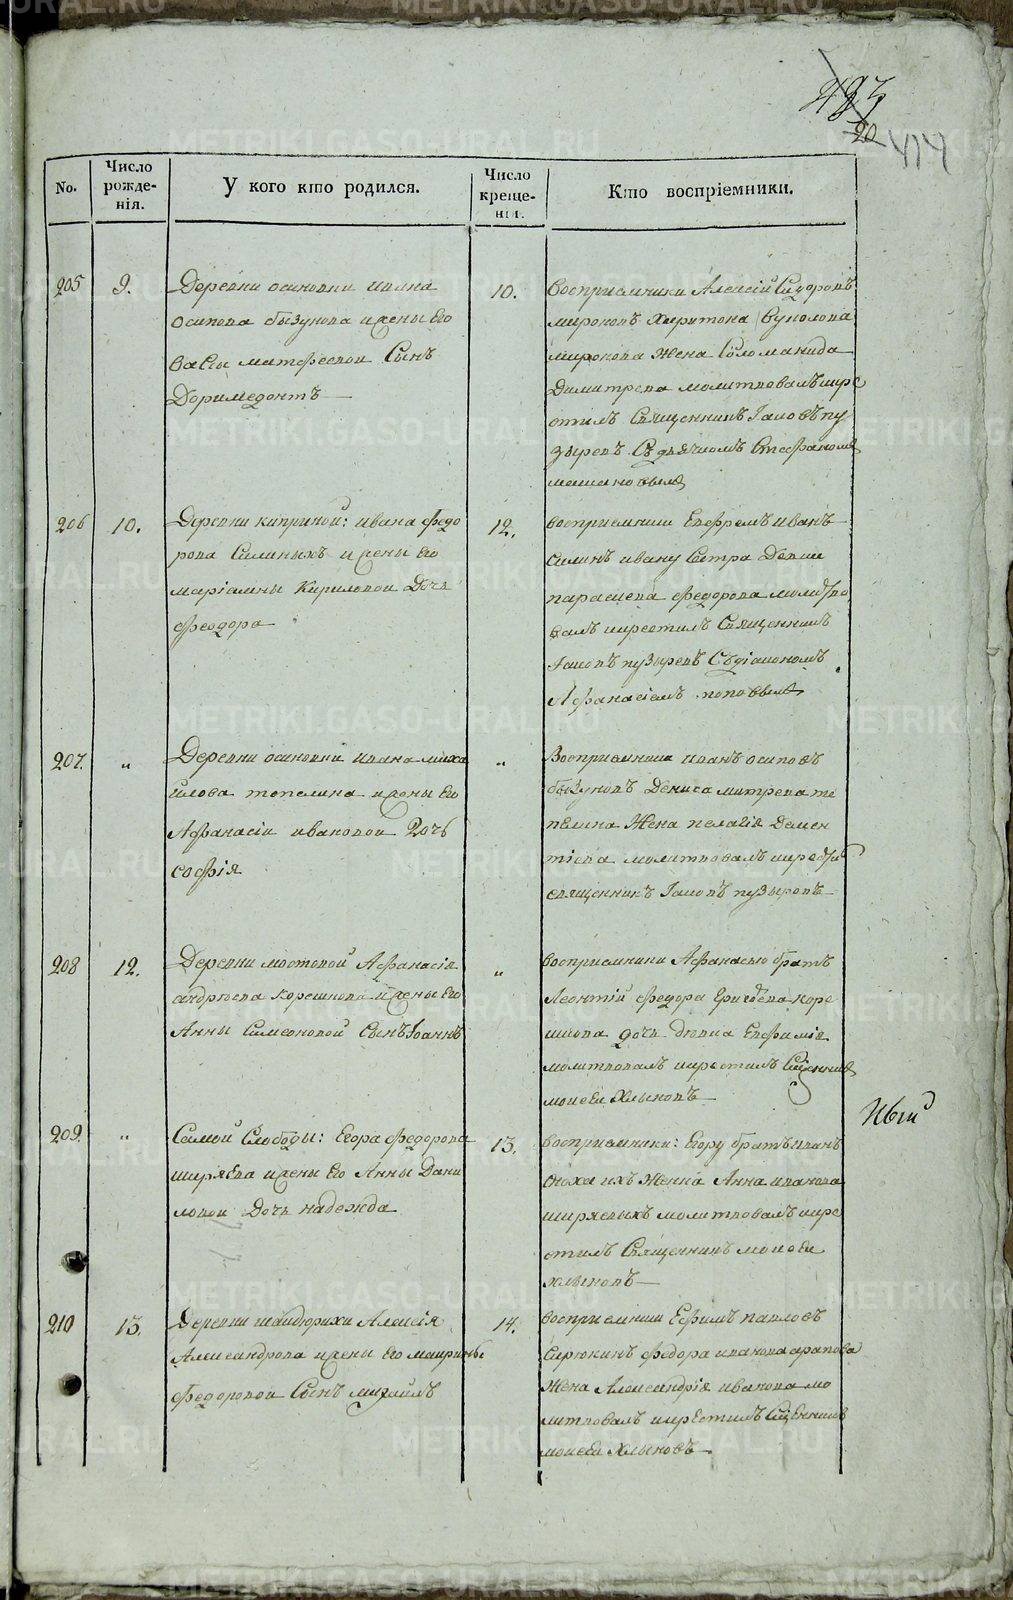 20
No.
Число рожде-нія.
У кого кто родился.
Число креще-нія.
Кто воспріемники.
205
9.
Деревни осиновки ивана
осипова бызунова и жены Его
вассы матфеевой Сынъ
Доримедонтъ
10.
восприемники Алексій Сидоровъ
мироновъ Харитона
миронова жена Соломанида
Димитрева молитвовалъ икре
стилъ Священникъ Іаковъ пу
зыревъ Съ дьячкомъ Стефаномъ
206
10.
Деревни киприной: ивана федо
рова Силиныхъ и жены Его
маріамны Кириловой Дочь
феодора
12.
восприемники Ефремъ иванъ
силинъ ивану Сестра Девки
парасцева федорова молитво
валъ икрестилъ Священникъ
Іаковъ пузыревъ Съ діакономъ
Афанасіемъ поповымъ
207.
"
Деревни осиновки ивана миха
илова тепелина и жены Его
Афанасіи ивановой Дочь
софія
"
Восприемники иванъ осиповъ
бызуновъ Дениса митрева те
пелина Жена пелагія Демен
тіева молитвовалъ икрестилъ
священникъ Іаковъ пузыревъ
208
12.
Деревни мостовой Афанасія
андреева корешкова и жены Его
Анны Симеоновой Сынъ Іоаннъ
"
восприемники Афанасью братъ
Леонтій федора Григорьева коре
шкова дочь девка Евфимія
молитвовалъ икрестилъ Сщенникъ
моисей Хлыновъ
209.
"
Самой Слободы: Егора федорова
ширяева и жены Его Анны Дани
ловой Дочь надежда
13.
восприемники: Егору братъ иванъ
сноха ихъ женка Анна иванова
ширяевыхъ молитвовалъ икре
стилъ Священникъ моисей
хлыновъ
210
13.
Деревни шайдюрихи Алексія
Александрова и жены Его маиримьи
федоровой Сынъ михаилъ
14.
восприемники Ефимъ павловъ
Сирюкинъ федора иванова арапова
Жена Александрія иванова мо
литвовалъ икрестилъ Сщенникъ
моисей Хлыновъ
METRIKI.GASO-URAL.RU